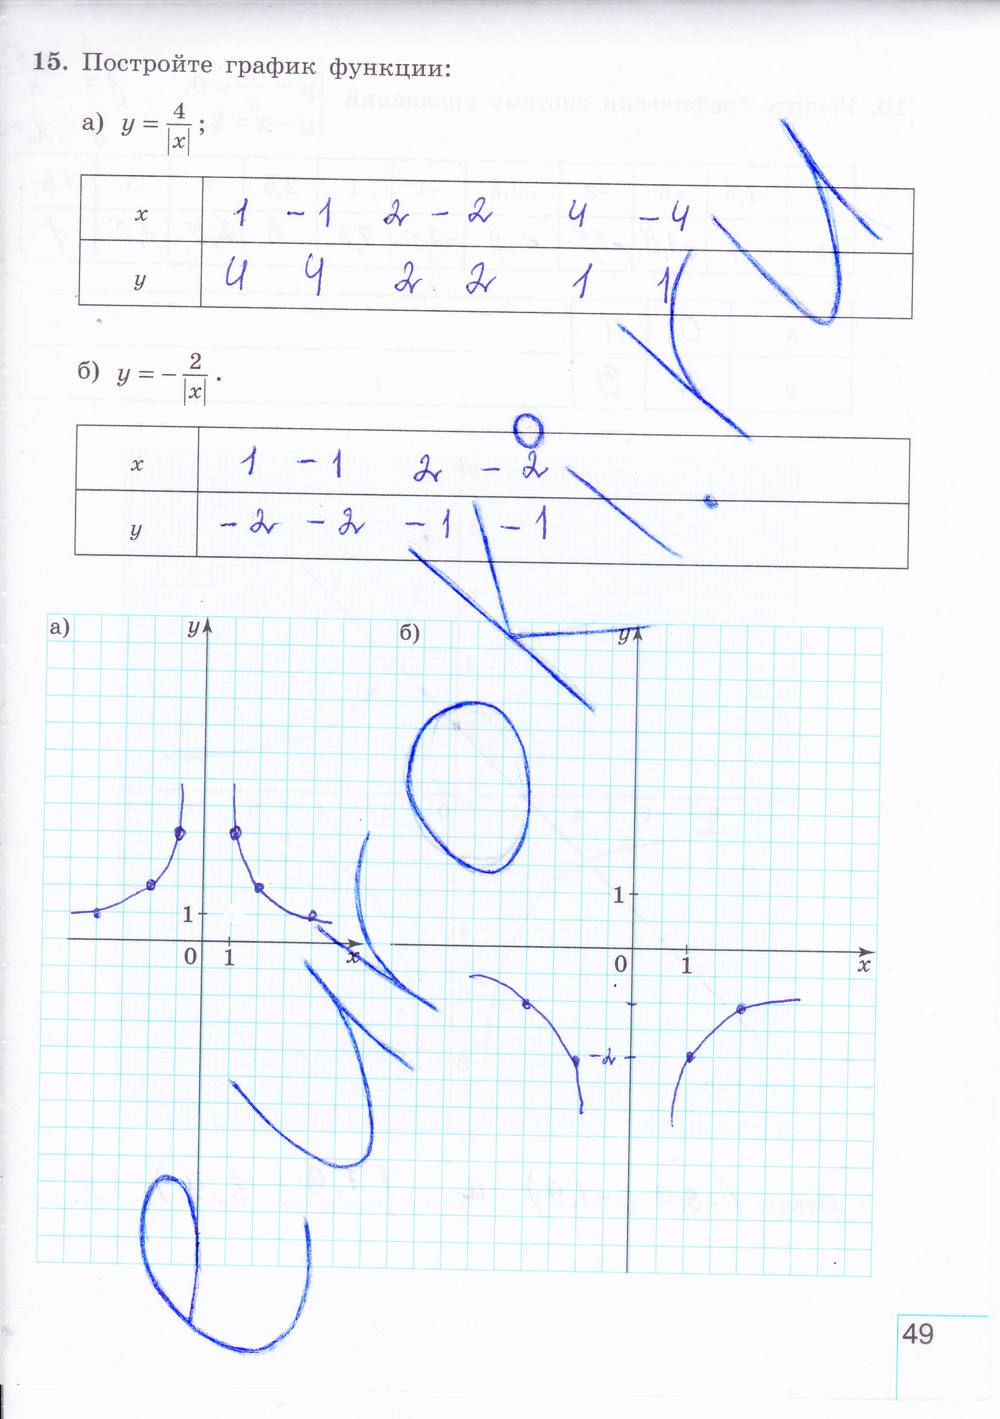 15. Постройте график функции:
а) y = 4/|x|;
x 1 -1 2 -2 4 -4
y 4 4 2 2 1 1
б) y = -2/|x|.
x 1 -1 2 -2
y -2 -2 -1 -1
а) y б) y
1
1
0 1 x 0 1 x
-2
49